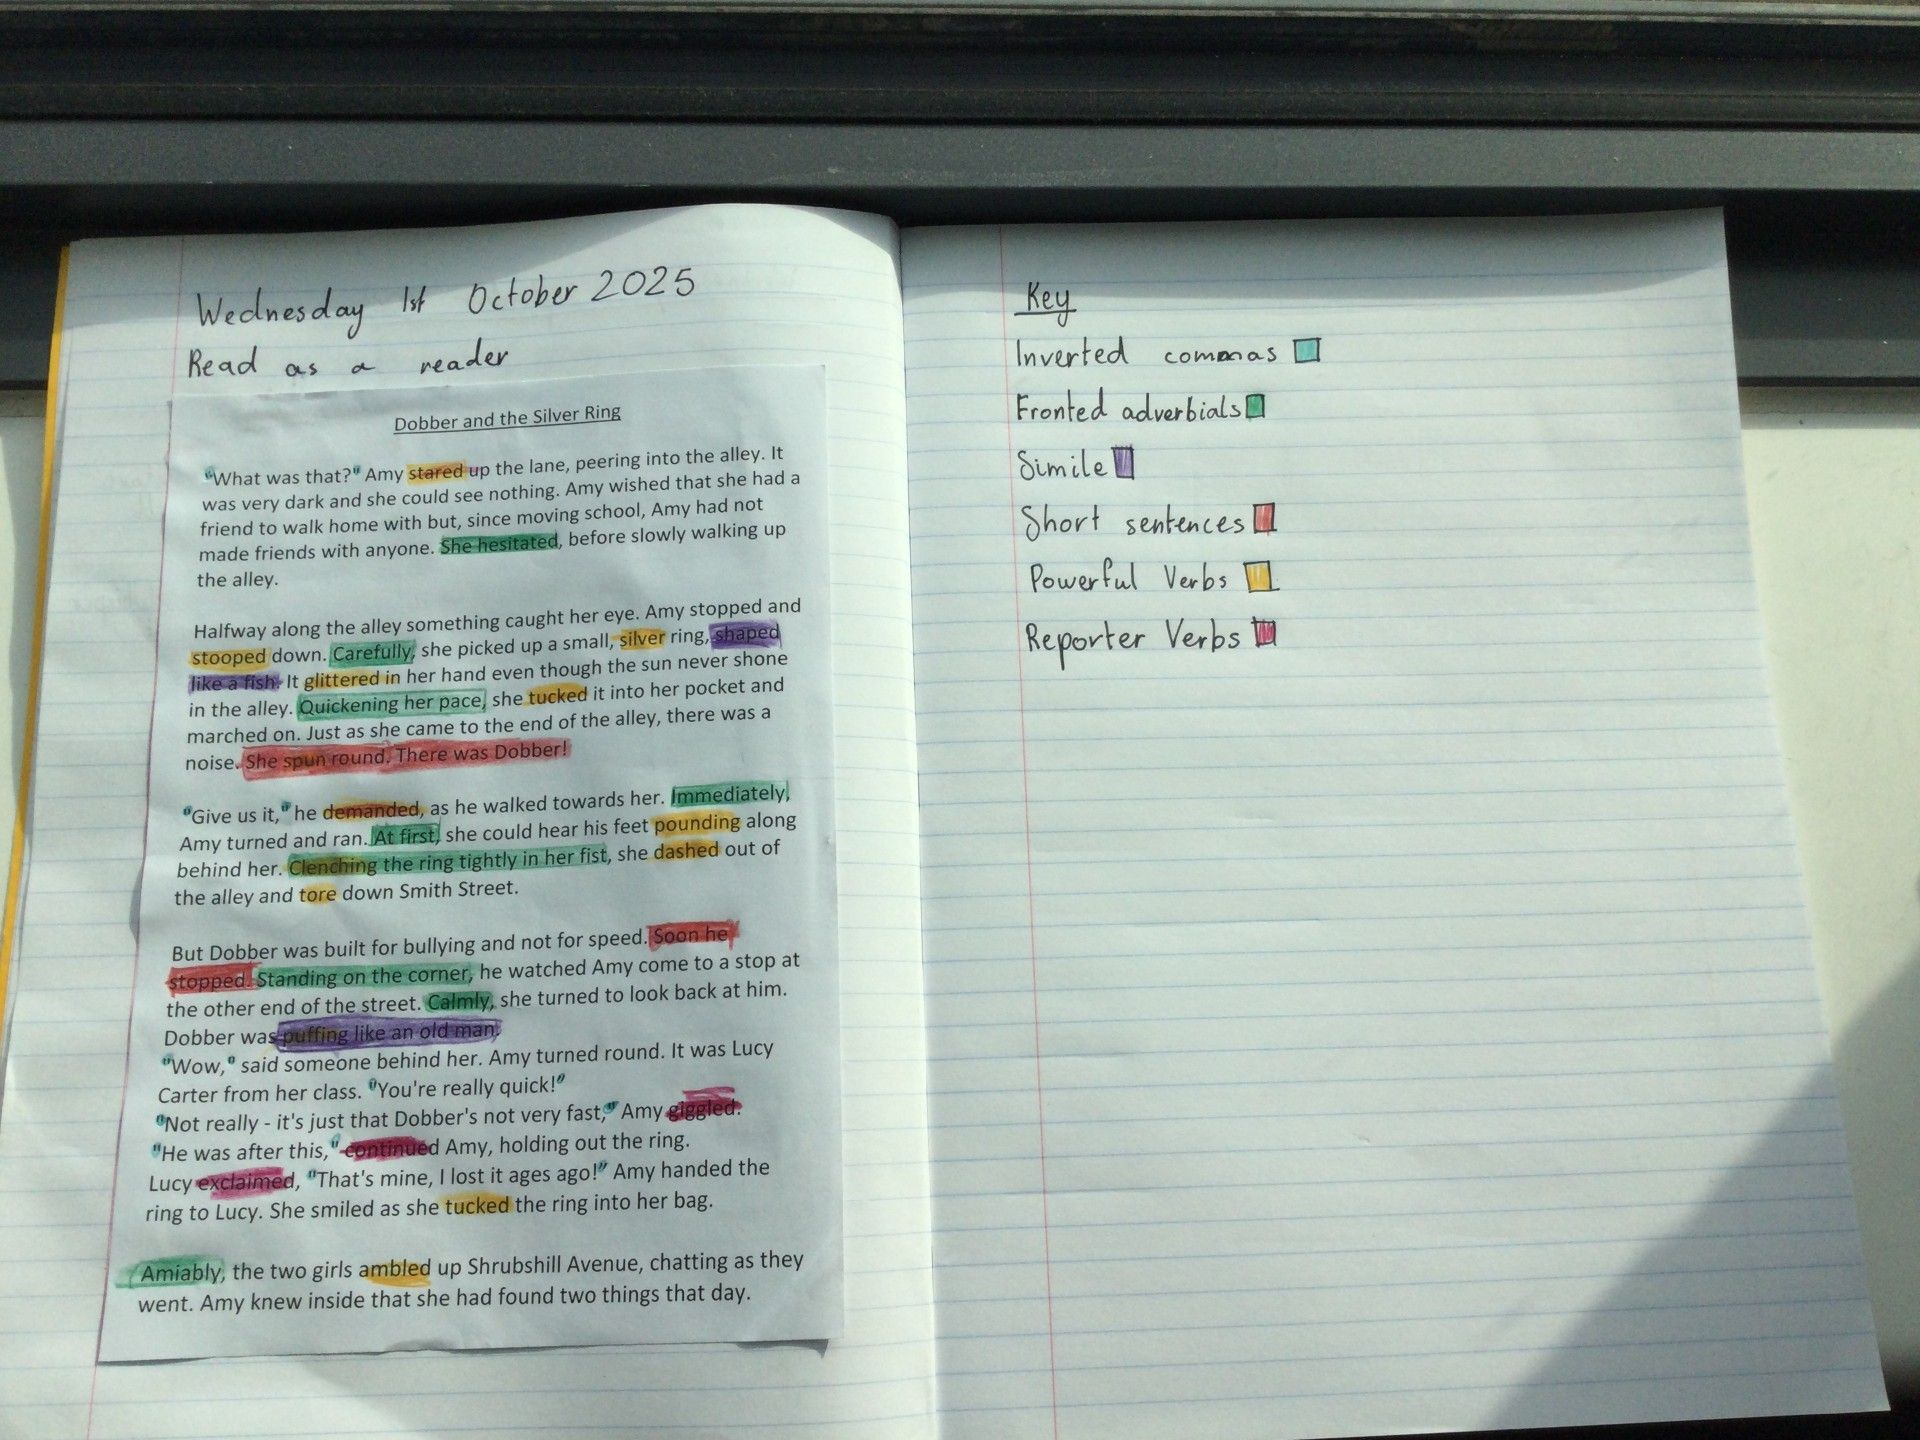 Wednesday 1st October 2025
Read as a reader
Dobber and the Silver Ring
"What was that?" Amy stared up the lane, peering into the alley. It
was very dark and she could see nothing. Amy wished that she had a
friend to walk home with but, since moving school, Amy had not
made friends with anyone. She hesitated, before slowly walking up
the alley.
Halfway along the alley something caught her eye. Amy stopped and
stooped down. Carefully, she picked up a small, silver ring, shaped
like a fish. It glittered in her hand even though the sun never shone
in the alley. Quickening her pace, she tucked it into her pocket and
marched on. Just as she came to the end of the alley, there was a
noise. She spun round. There was Dobber!
"Give us it," he demanded, as he walked towards her. Immediately,
Amy turned and ran. At first, she could hear his feet pounding along
behind her. Clenching the ring tightly in her fist, she dashed out of
the alley and tore down Smith Street.
But Dobber was built for bullying and not for speed. Soon he
stopped. Standing on the corner, he watched Amy come to a stop at
the other end of the street. Calmly, she turned to look back at him.
Dobber was puffing like an old man.
"Wow," said someone behind her. Amy turned round. It was Lucy
Carter from her class. "You're really quick!"
"Not really - it's just that Dobber's not very fast," Amy giggled.
"He was after this," continued Amy, holding out the ring.
Lucy exclaimed, "That's mine, I lost it ages ago!" Amy handed the
ring to Lucy. She smiled as she tucked the ring into her bag.
Amiably, the two girls ambled up Shrubshill Avenue, chatting as they
went. Amy knew inside that she had found two things that day.
Key
Inverted commas
Fronted adverbials
Simile
Short sentences
Powerful Verbs
Reporter Verbs